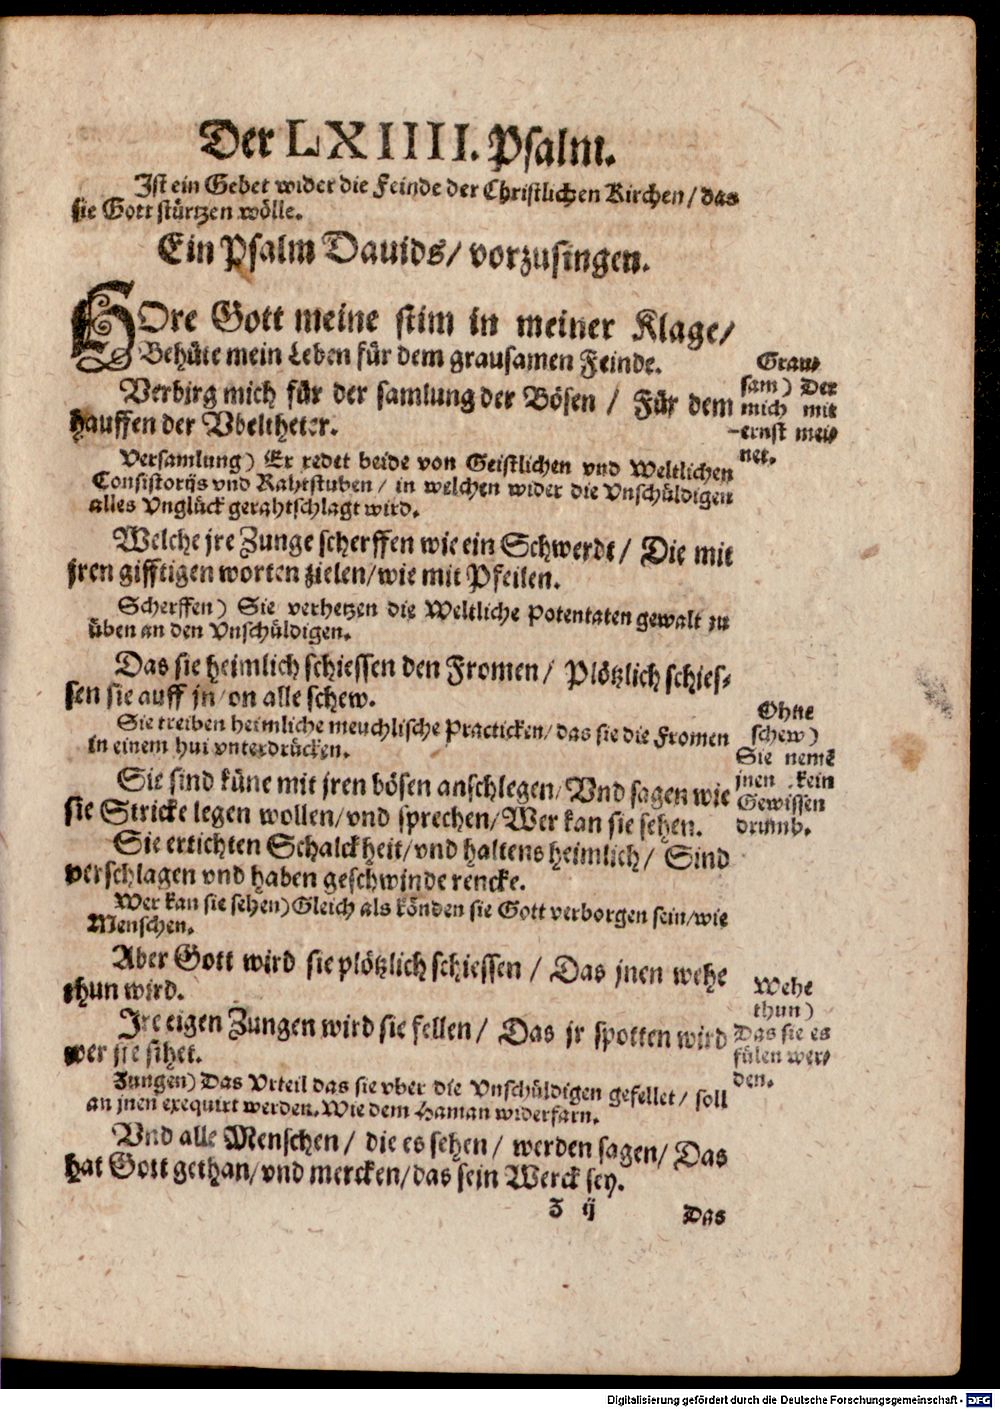 Der LXIIII. Psalm.
Ist ein Gebet wider die Feinde der Christlichen Kirchen / das
sie Gott stürtzen wölle.
Ein Psalm Dauids / vorzusingen.
HOre Gott meine stim in meiner Klage /
Behüte mein Leben für dem grausamen Feinde.
Verbirg mich für der samlung der Bösen / Für dem
hauffen der Vbeltheter.
Grau-
sam) Der
mich mit
ernst mei-
net.
Versamlung) Er redet beide von Geistlichen vnd Weltlichen
Consistorijs vnd Rahtstuben / in welchen wider die Vnschüldigen
alles Vnglück gerahtschlagt wird.
Welche jre Zunge scherffen wie ein Schwerdt / Die mit
jren gifftigen worten zielen / wie mit Pfeilen.
Scherffen) Sie verhetzen die Weltliche Potentaten gewalt zu
üben an den Vnschüldigen.
Das sie heimlich schiessen den Fromen / Plötzlich schies-
sen sie auff jn / on alle schew.
Sie treiben heimliche meuchlische Practicken / das sie die Fromen
in einem hui vnterdrücken.
Ohne
schew)
Sie nemē
jnen kein
Gewissen
drumb.
Sie sind küne mit jren bösen anschlegen / Vnd sagen wie
sie Stricke legen wollen / vnd sprechen / Wer kan sie sehen.
Sie ertichten Schalckheit / vnd haltens heimlich / Sind
verschlagen vnd haben geschwinde rencke.
Wer kan sie sehen) Gleich als könden sie Gott verborgen sein / wie
Menschen.
Aber Gott wird sie plötzlich schiessen / Das jnen wehe
thun wird.
Ire eigen Zungen wird sie fellen / Das jr spotten wird
wer sie sihet.
Wehe
thun)
Das sie es
fülen wer-
den.
Zungen) Das Vrteil das sie vber die Vnschüldigen gefellet / soll
an jnen exequirt werden. Wie dem Haman widerfarn.
Vnd alle Menschen / die es sehen / werden sagen / Das
hat Gott gethan / vnd mercken / das sein Werck sey.
Z ij
Das
Digitalisierung gefördert durch die Deutsche Forschungsgemeinschaft - DFG